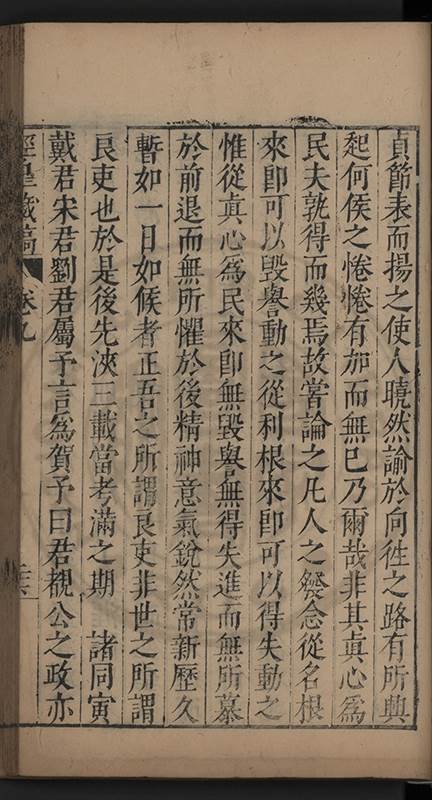 貞節表而揚之使人曉然諭於向徃之路有所興
起何侯之惓惓有加而無已乃爾哉非其眞心爲
民夫孰得而幾焉故甞論之凡人之發念從名根
來卽可以毀譽動之從利根來卽可以得失動之
惟從眞心爲民來卽無毀譽無得失進而無所慕
於前退而無所懼於後精神意氣銳然常新歷久
暫如一日如候者正吾之所謂良吏非世之所謂
良吏也於是後先浹三載當考滿之期　諸同寅
戴君宋君劉君屬予言爲賀予曰君覩公之政亦
涇臯藏稿 卷九